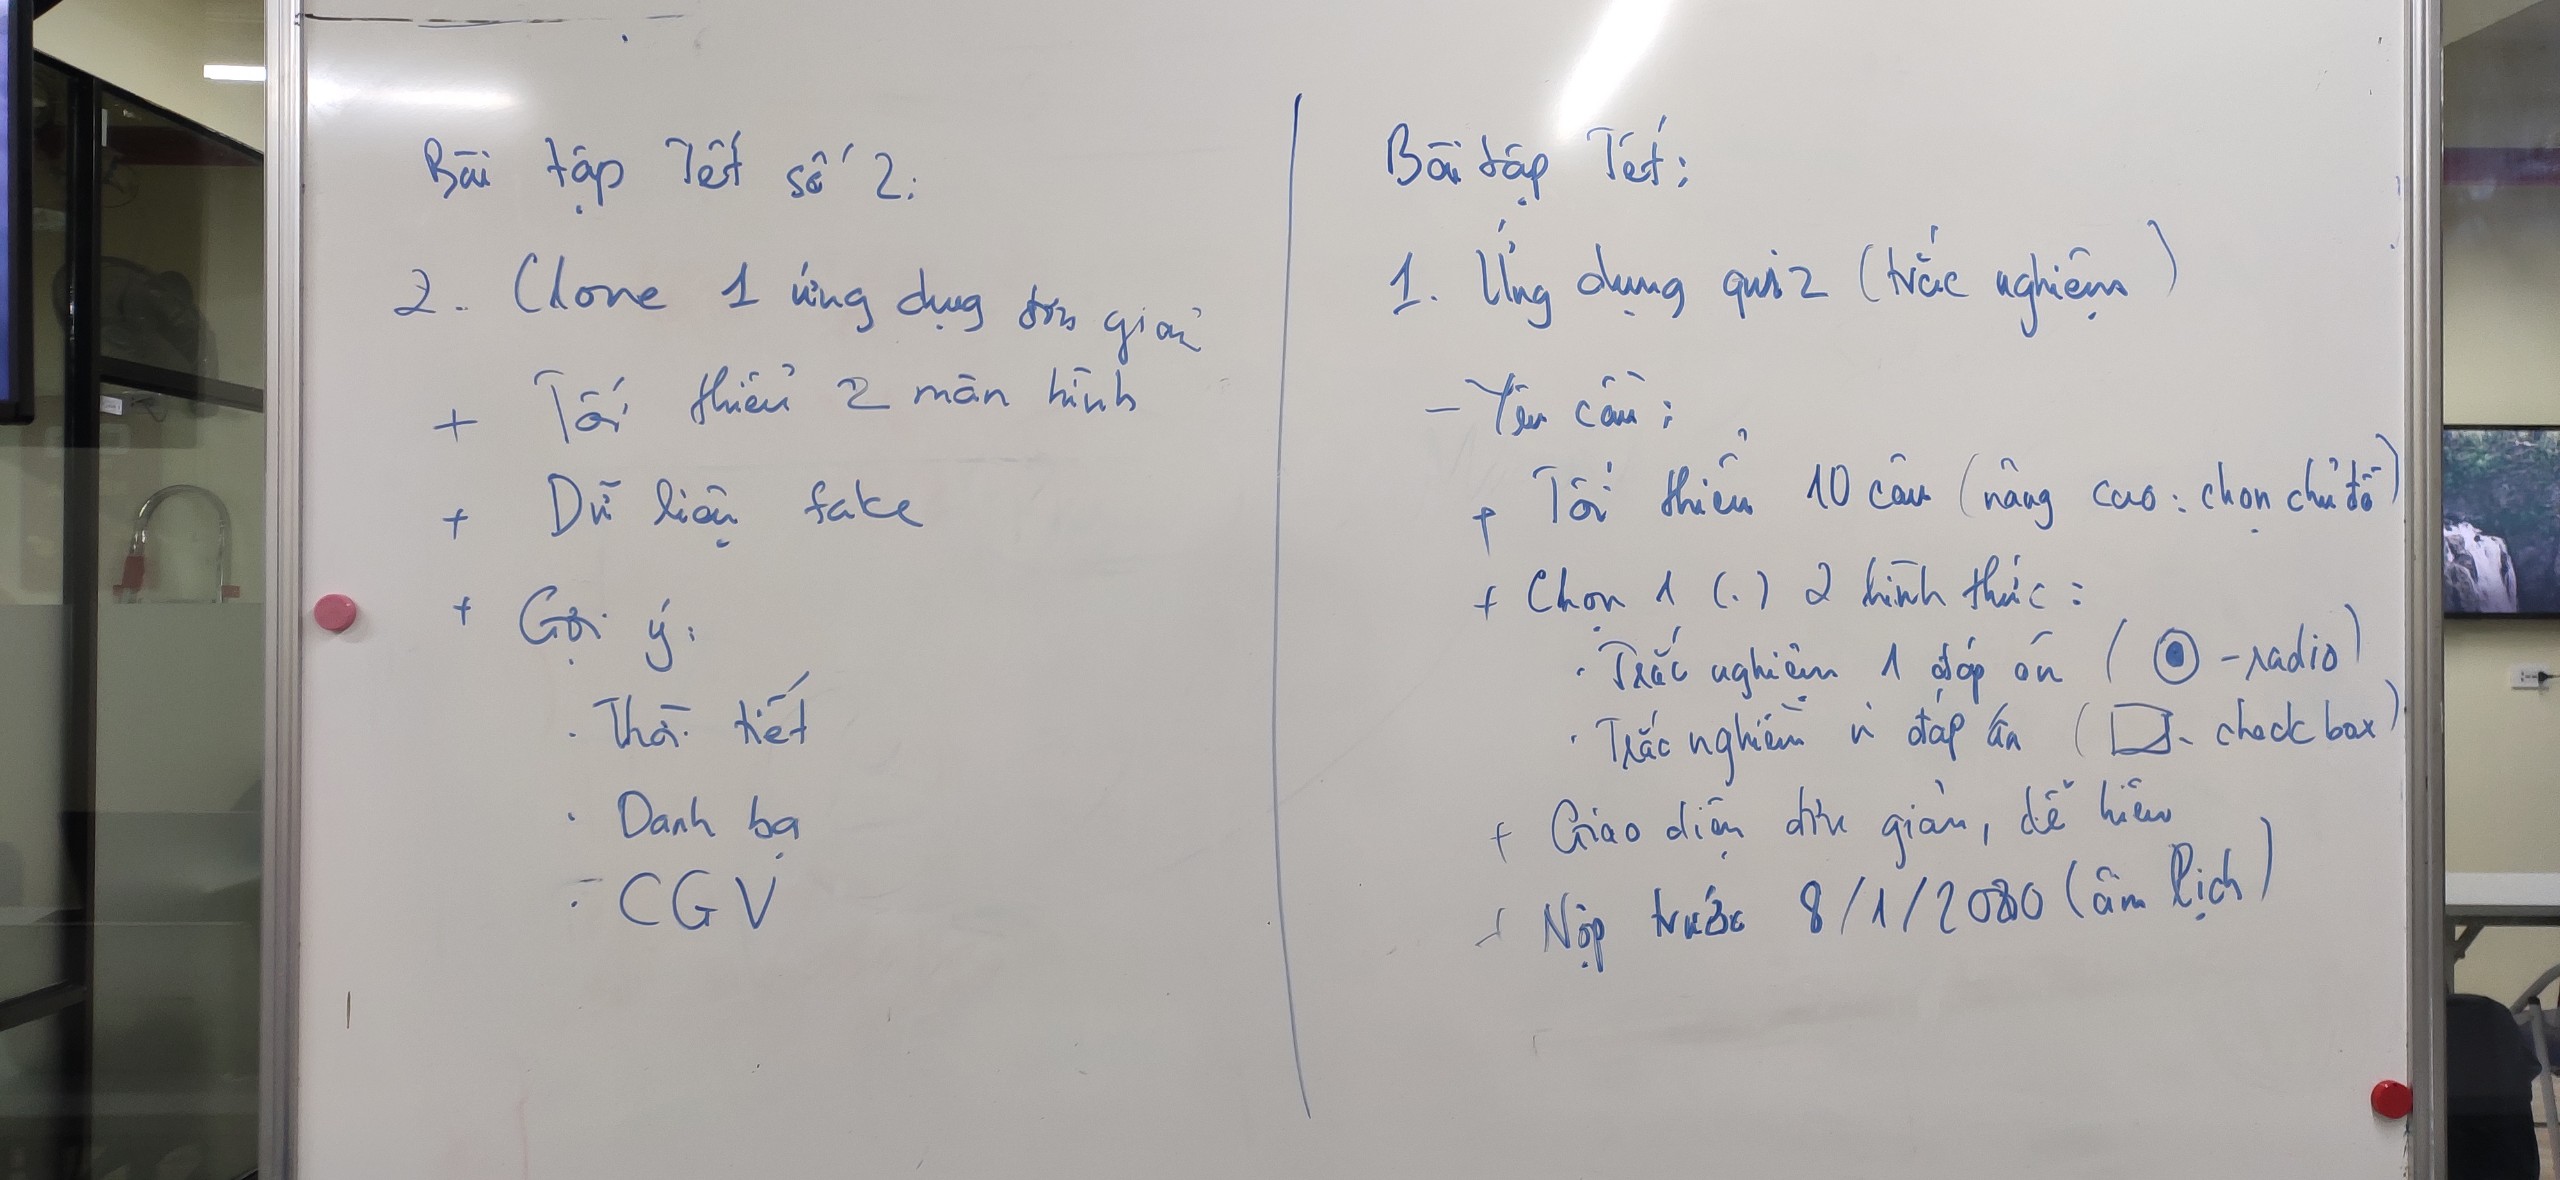 Bài tập Tết số 2:
2. Clone 1 ứng dụng đơn giản
+ Tối thiểu 2 màn hình
+ Dữ liệu fake
+ Gợi ý:
· Thời tiết
· Danh bạ
· CGV
Bài tập Tết:
1. Ứng dụng quiz (trắc nghiệm)
- Yêu cầu:
+ Tối thiểu 10 câu (nâng cao: chọn chủ đề)
+ Chọn 1 (.) 2 hình thức:
· Trắc nghiệm 1 đáp án (-radio)
· Trắc nghiệm n đáp án (- checkbox)
+ Giao diện đơn giản, dễ hiểu
+ Nộp trước 8/1/2020 (âm lịch)